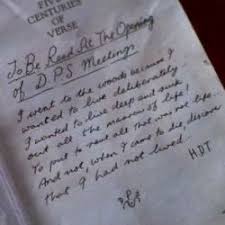 FIVE
CENTURIES
OF
VERSE
To Be Read At The Opening
of D.P.S Meetings
I went to the woods because I
wanted to live deliberately.
I wanted to live deep and suck
out all the marrow of life!
To put to rout all that was not life..
And not, when I came to die, discover
that I had not lived.
HDT